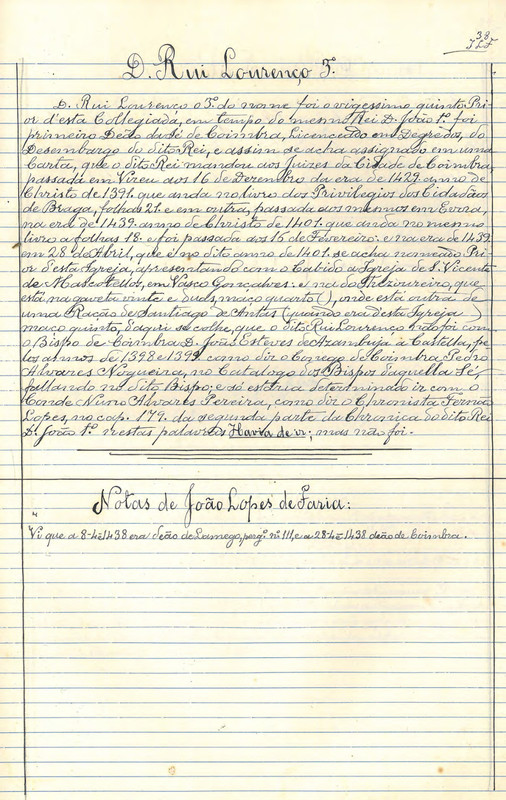 38
JLF
D. Rui Lourenço 3º.
D. Rui Lourenço o 3º. do nome foi o vigessimo quinto Pri-
or d'esta Collegiada, em tempo do mesmo Rei D. João 1º. foi
primeiro Deão da Sé de Coimbra, Licenceado em Degredos, do
Desembargo do dito Rei, e assim se acha assignado em uma
Carta, que o dito Rei mandou aos Juizes da Cidade de Coimbra,
passada em Vizeu aos 16 de Dezembro da era de 1429. anno de
Christo de 1391. que anda no livro dos Privilegios dos Cidadãos
de Braga, folhas 21. e em outra, passada aos mesmos em Evora,
na era de 1439. anno de Christo de 1401. que anda no mesmo
livro a folhas 18. e foi passada aos 15 de Fevereiro: e na era de 1439.
em 28 de Abril, que é no dito anno de 1401. se acha nomeado Pri-
or d'esta Igreja, apresentando com o Cabido a Igreja de S. Vicente
de Mascotellos, em Vasco Gonçalves: e na do Thezoureiro, que
está na gaveta vinte e duas, maço quarto (), onde está outra de
uma Ração de Santiago de Antas (quando era desta Igreja)
maço quinto, daqui se colhe, que o dito Rui Lourenço não foi com
o Bispo de Coimbra D. João Esteves de Azambuja á Castella, pe-
los annos de 1398 e 1399. como diz o Conego de Coimbra Pedro
Alvares Nogueira, no Catalogo dos Bispos daquella Sé,
fallando no dito Bispo; e só estria determinado ir com o
Conde Nuno Alvares Pereira, como diz o Chronista Fernão
Lopes, no cap. 179. da segunda parte da Chronica do dito Rei
D. João 1º. nestas palavras Havia de ir; mas não foi.
Notas de João Lopes de Faria:
"
Vi que a 8-4º-1438 era deão de Lamego, perg.º nº. 111, e a 28-4º-1438 deão de Coimbra.